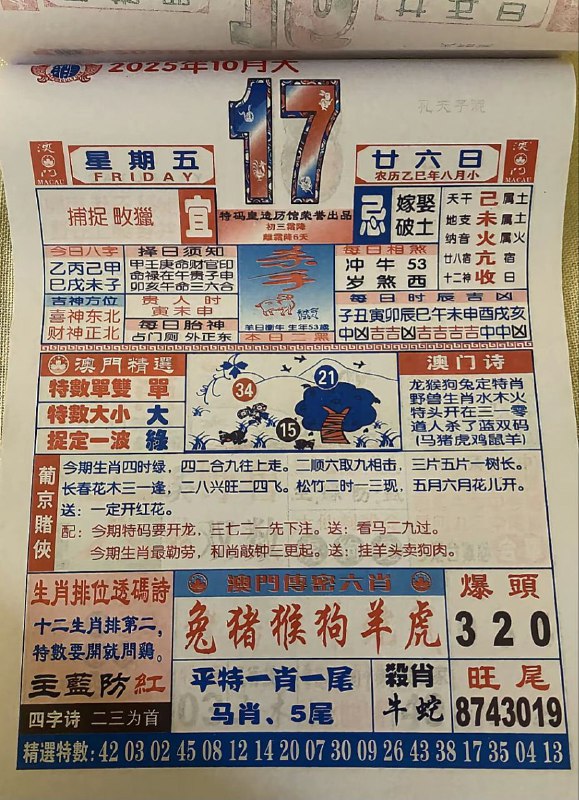 2025年10月大
17
澳门
MACAU
星期五
FRIDAY
廿六日
农历乙巳年八月小
澳门
MACAU
捕捉 畋獵
宜
特码皇造历馆荣誉出品
初三霜降
離霜降6天
忌
嫁娶
破土
天干 己 属土
地支 未 属土
纳音 火 属火
廿八宿 亢 宿
十二神 收 日
今日八字
乙丙己甲
巳戌未子
择日须知
甲壬庚命财官印
命禄在午贵子申
卯亥午命三六合
羊日衝牛 生年53歲
每日相煞
冲牛53
岁煞西
吉神方位
喜神东北
财神正北
贵人时
寅未申
每日胎神
占门厕 外正东
本日一黑
每日时辰吉凶
子丑寅卯辰巳午未申酉戌亥
中凶吉凶吉吉吉吉吉中中凶
澳門精選
特數單雙 單
特數大小 大
捉定一波 綠
34
21
15
澳门诗
龙猴狗兔定特肖
野兽生肖水木火
特头开在三一零
道人杀了蓝双码
(马猪虎鸡鼠羊)
葡京賭俠
今期生肖四时绿，四二合九往上走。二顺六取九相击，三片五片一树长。
长春花木三一逢，二八兴旺二四飞。松竹二时一三现，五月六月花儿开。
送：一定开红花。
配：今期特码要开龙，三七二一先下注。送：看马二九过。
今期生肖最勒劳，和肖敲钟三更起。送：挂羊头卖狗肉。
生肖排位透碼詩
十二生肖排第二，
特數要開就問鷄。
主藍防紅
四字诗 二三为首
澳門傳密六肖
兔猪猴狗羊虎
爆頭
320
平特一肖一尾
马肖、5尾
殺肖
牛蛇
旺尾
8743019
精選特數: 42 03 02 45 08 12 14 20 07 30 09 26 43 38 17 35 04 13